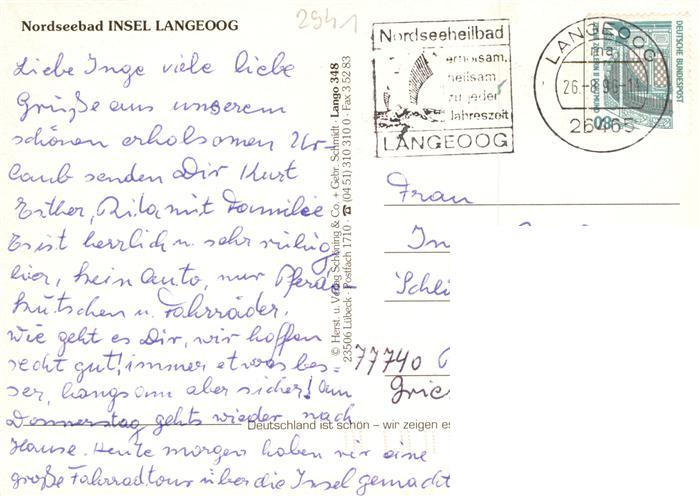 2941
Nordseebad INSEL LANGEOOG
Liebe Inge viele liebe
Grüße aus unserem
schönen erholsamen Ur-
laub senden Dir Kurt
Esther, Rita mit Familie
Es ist herrlich u. sehr ruhig
hier, kein Auto, nur Pferde
kutschen u. Fahrräder.
Wie geht es Dir, wir hoffen
recht gut! immer etwas bes=
ser, langsam aber sicher! Am
Donnerstag gehts wieder nach
Hause. Heute morgen haben wir eine
große Fahrradtour über die Insel gemacht
© Herst. u. Verlag Schöning & Co. + Gebr. Schmidt · Lango 348
23506 Lübeck · Postfach 1710 · ☎ (04 51) 310 3110 0 · Fax 3 52 83
Deutschland ist schön – wir zeigen es
Nordseeheilbad
erholsam,
heilsam
zu jeder
Jahreszeit
LANGEOOG
LANGEOOG
ma
26.-8.96-11
26465
DEUTSCHE BUNDESPOST
80
Frau
In
Schli
77740
Grie